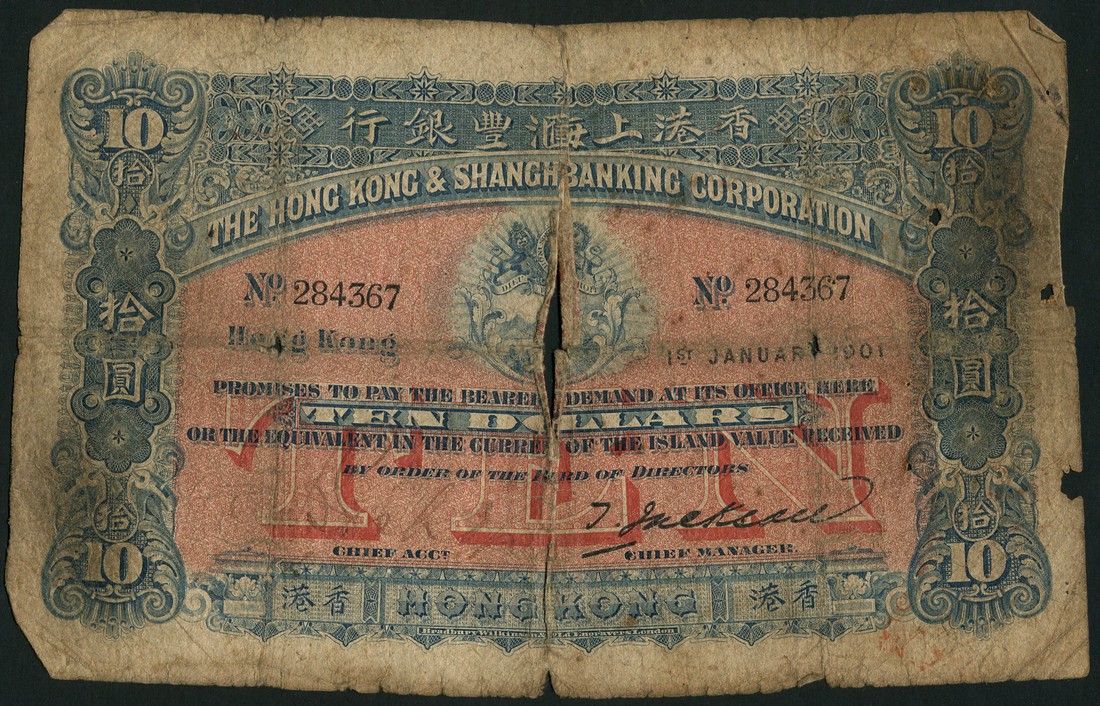 10 行銀豐滙上港香 10
拾 拾
THE HONG KONG & SHANGH BANKING CORPORATION
No. 284367 No. 284367
拾圓 拾圓
Hong Kong 1ST JANUARY 1901
PROMISES TO PAY THE BEARER DEMAND AT ITS OFFICE HERE
TEN DOLLARS
OR THE EQUIVALENT IN THE CURREN OF THE ISLAND VALUE RECEIVED
BY ORDER OF THE BOARD OF DIRECTORS
TEN
拾 T. Jackson 拾
CHIEF ACCT. CHIEF MANAGER.
10 港香 HONG KONG 港香 10
Bradbury Wilkinson & Co Ld Engravers London